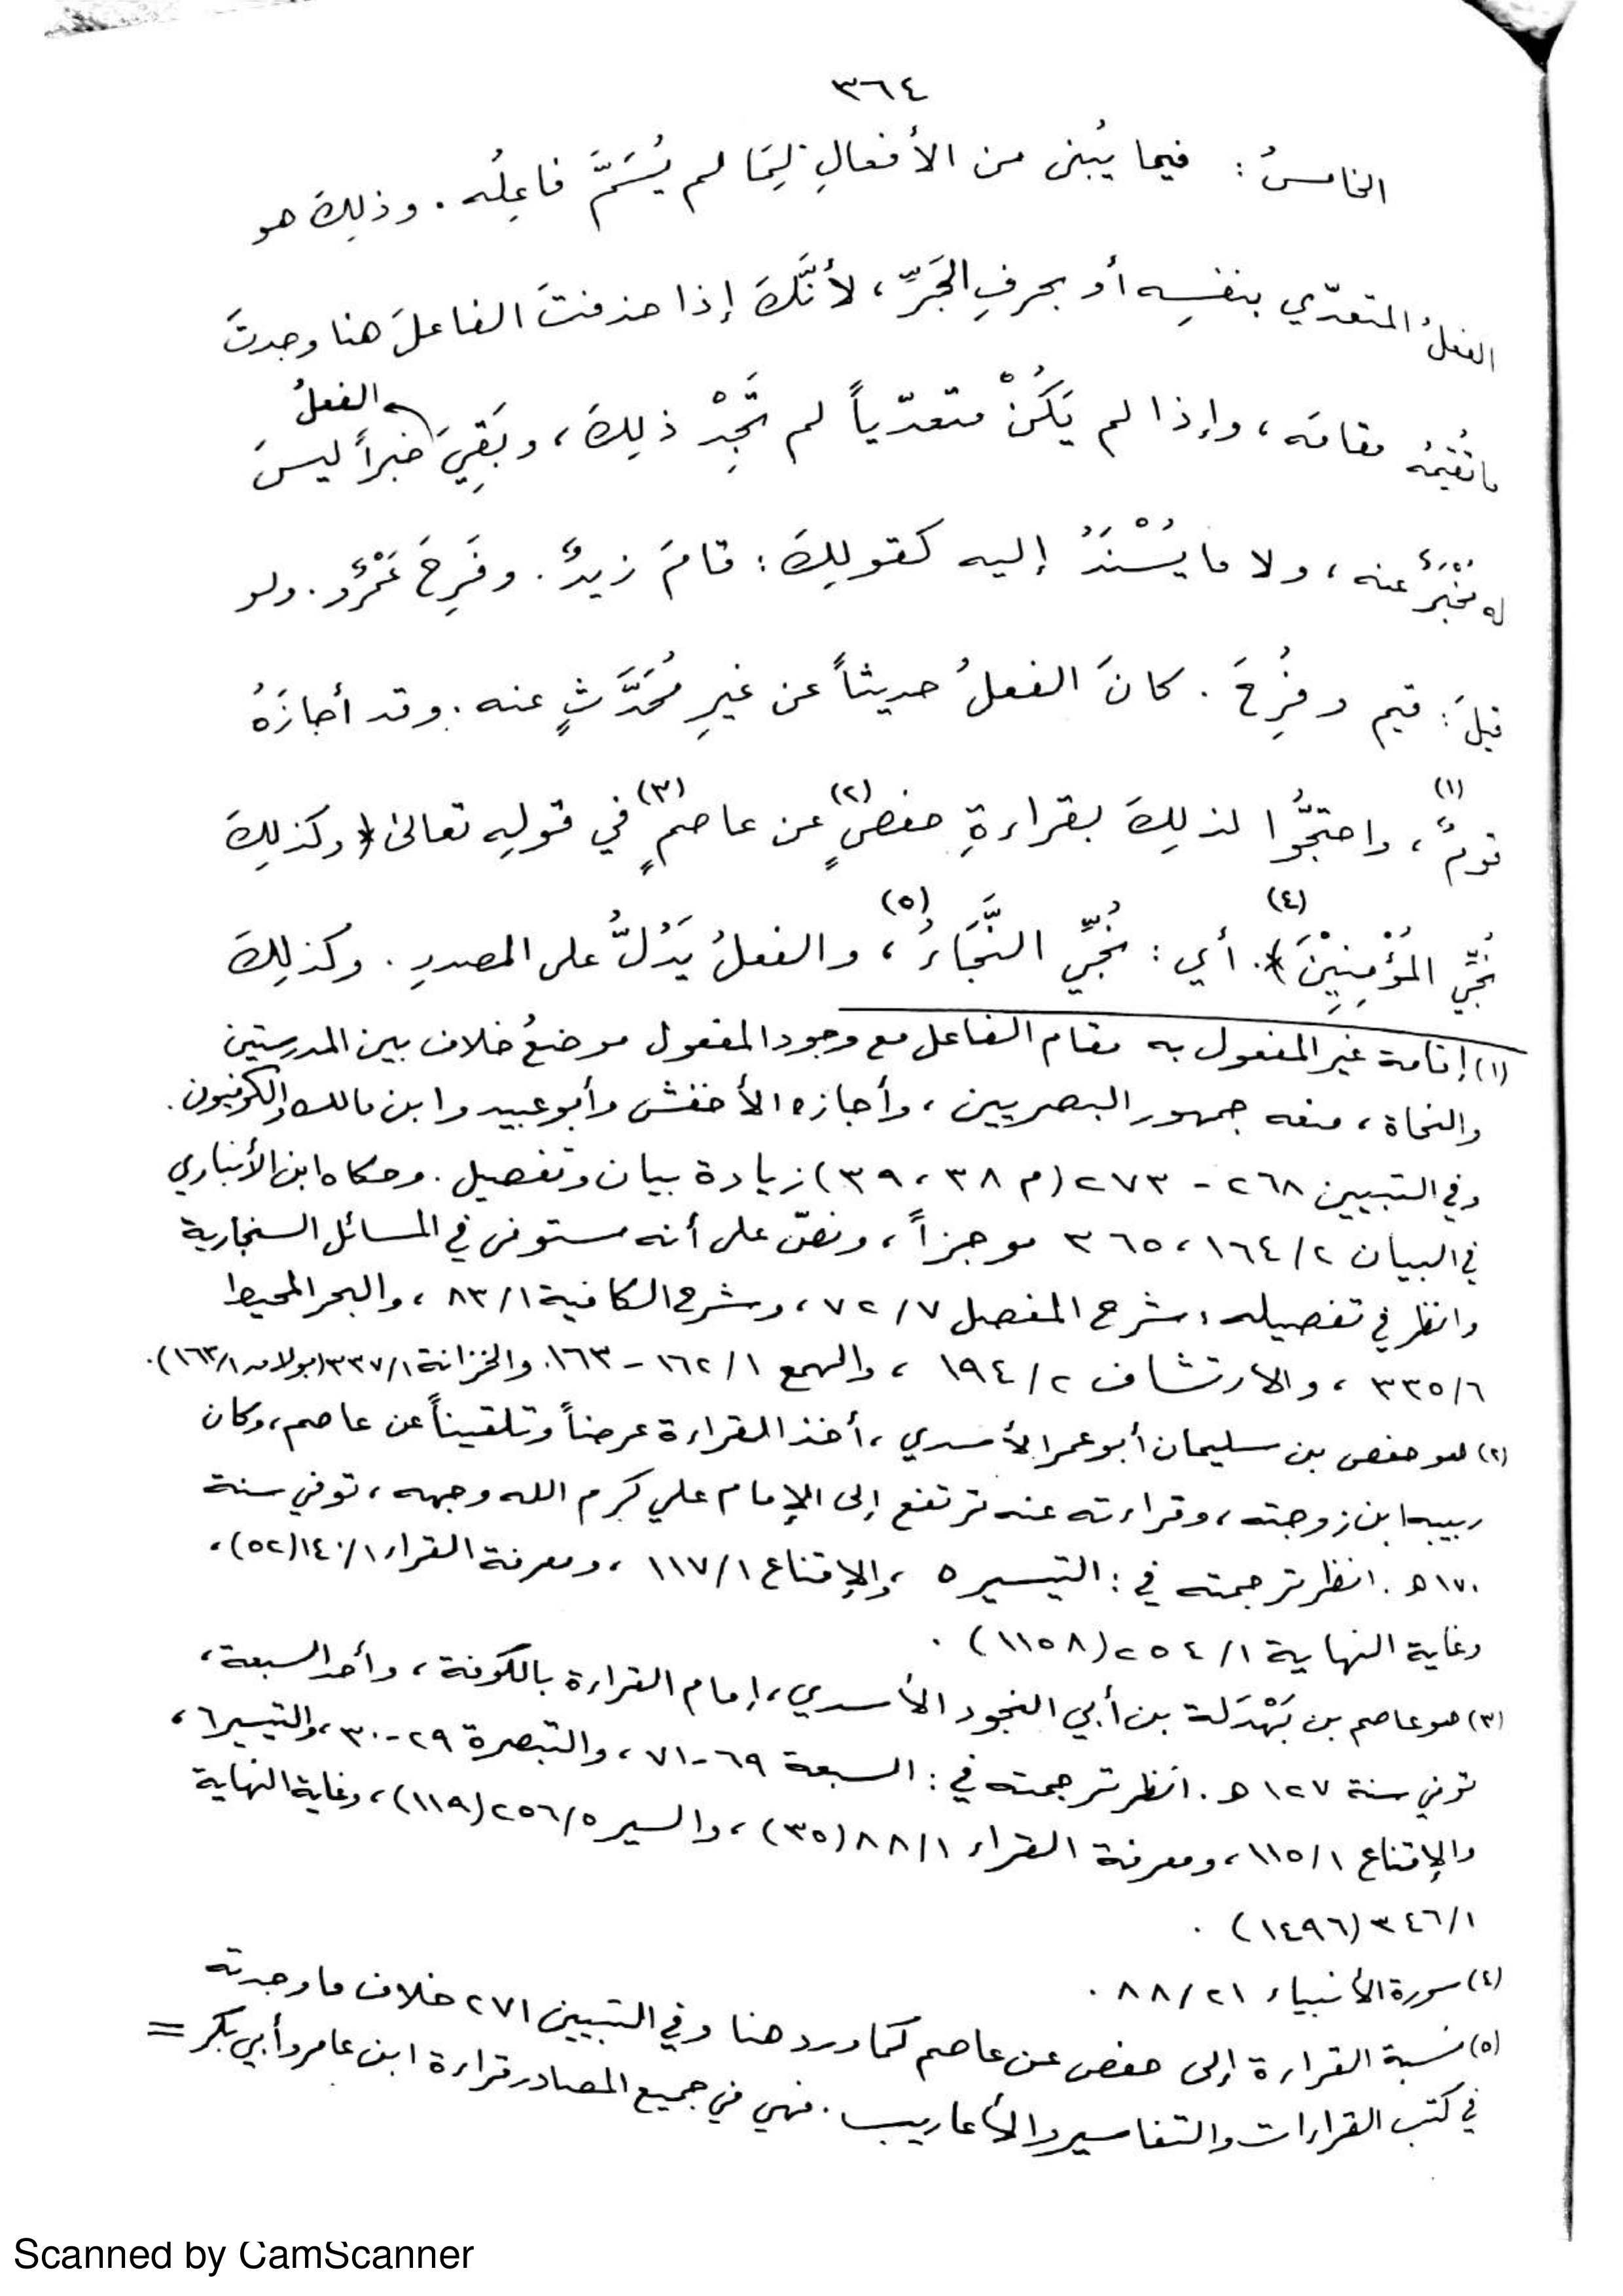 ٣٦٤
الخامسُ : فيما يُبنى من الأفعالِ لِمَا لم يُسَمَّ فاعِلُه . وذلِكَ هو
الفعلُ المتعدّي بنفسِه أو بحرفِ الجَرِّ ، لأنَّكَ إذا حذفتَ الفاعلَ هنا وجدتَ
ما تُقيمُه مقامَه ، وإذا لم يَكُنْ متعدّياً لم تَجِدْ ذلِكَ ، وبَقِيَ الفعلُ خبراً ليسَ
له مُخْبَرٌ عنه ، ولا ما يُسْنَدُ إليه كقولِكَ : قامَ زيدٌ . وفَرِحَ عَمْرٌو . ولو
قيلَ : قيم وفُرِحَ . كانَ الفعلُ حديثاً عن غيرِ مُحَدَّثٍ عنه . وقد أجازَهُ
قومٌ (١) ، واحتجُّوا لذلِكَ بقراءةِ حفصٍ (٢) عن عاصمٍ (٣) في قولِه تعالى ﴿ وكذلِكَ
نُجِّي المُؤْمِنِيْنَ ﴾ (٤) . أي : نُجِّي النَّجَاءُ (٥) ، والفعلُ يَدُلُّ على المصدرِ . وكذلِكَ
(١) إقامة غير المفعول به مقام الفاعل مع وجود المفعول موضعُ خلاف بين المدرستين
والنحاة ، منعه جمهور البصريين ، وأجازه الأخفش وأبو عبيد وابن مالك والكوفيون .
وفي التبيين ٢٦٨ - ٢٧٣ (م ٣٨ ، ٣٩) زيادة بيان وتفصيل . وحكاه ابن الأنباري
في البيان ٢/ ١٦٤ ، ٣٦٥ موجزاً ، ونصّ على أنه مستوفى في المسائل السنجارية
وانظر في تفصيله : شرح المفصل ٧/ ٧٢ ، وشرح الكافية ١/ ٨٣ ، والبحر المحيط
٦/ ٣٣٥ ، والارتشاف ٢/ ١٩٤ ، والهمع ١/ ١٦٢ - ١٦٣ . والخزانة ١/ ٣٣٧ (بولاق ١/ ١٦٣) .
(٢) هو حفص بن سليمان أبو عمر الأسدي ، أخذ القراءة عرضاً وتلقيناً عن عاصم ، وكان
ربيبه ابن زوجته ، وقراءته عنه ترتفع إلى الإمام علي كرم الله وجهه ، توفي سنة
١٧٠ هـ . انظر ترجمته في : التيسير ٥ ، والإقناع ١/ ١١٧ ، ومعرفة القراء ١/ ١٤٠ (٥٢) ،
وغاية النهاية ١/ ٢٥٤ (١١٥٨) .
(٣) هو عاصم بن بَهْدَلة بن أبي النجود الأسدي ، إمام القراءة بالكوفة ، وأحد السبعة ،
توفي سنة ١٢٧ هـ . انظر ترجمته في : السبعة ٦٩ - ٧١ ، والتبصرة ٢٩ - ٣٠ ، والتيسير ٦ ،
والإقناع ١/ ١١٥ ، ومعرفة القراء ١/ ٨٨ (٣٥) ، والسير ٥/ ٢٥٦ (١١٩) ، وغاية النهاية
١/ ٣٤٦ (١٤٩٦) .
(٤) سورة الأنبياء ٢١/ ٨٨ .
(٥) نسبة القراءة إلى حفص عن عاصم كما ورد هنا وفي التبيين ٢٧١ خلاف ما وجدته
في كتب القراءات والتفاسير والأعاريب . فهي في جميع المصادر قراءة ابن عامر وأبي بكر =
Scanned by CamScanner